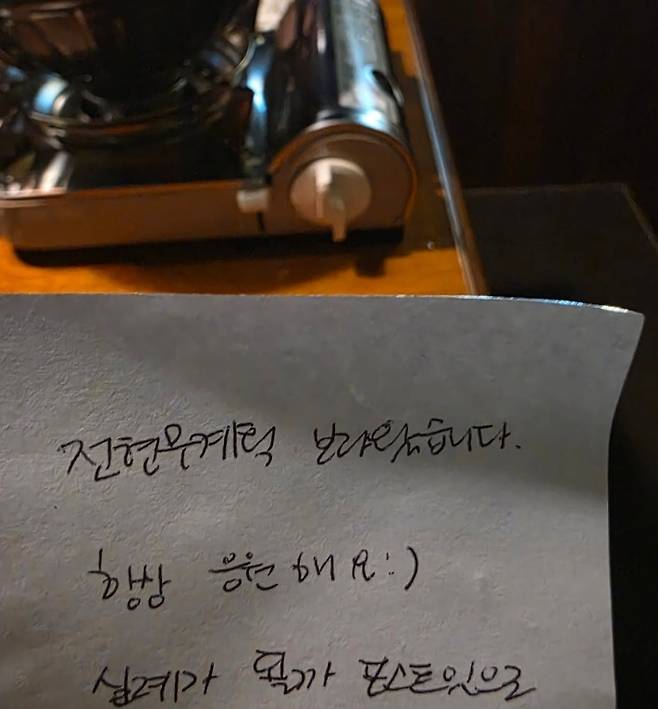 전현무계획 보라왔습니다.
항상 응원해요:)
실례가 될까 포스트잇으로